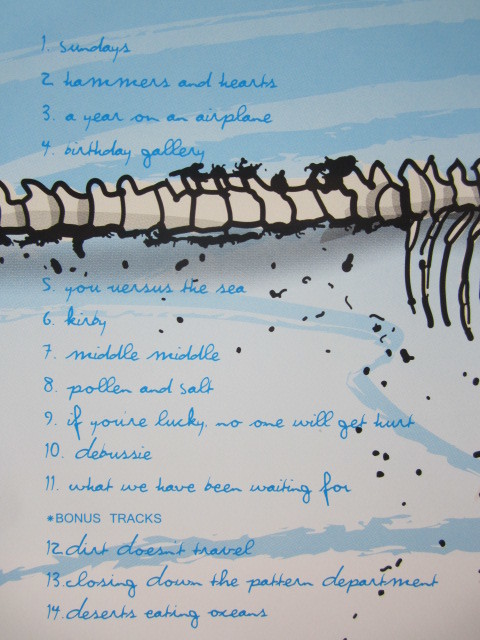 1. sundays
2. hammers and hearts
3. a year on an airplane
4. birthday gallery
5. you versus the sea
6. kirby
7. middle middle
8. pollen and salt
9. if you're lucky, no one will get hurt
10. debussie
11. what we have been waiting for
*BONUS TRACKS
12. dirt doesn't travel
13. closing down the pattern department
14. deserts eating oceans